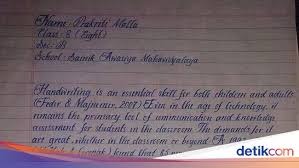 Name: Prakriti Malla
Class: 8 (Eight)
Sec: 'B'
School: Sainik Awasiya Mahavidyalaya
Handwriting is an essential skill for both children and adults
(Feder & Majnemer, 2007). Even in the age of technology, it
remains the primary tool of communication and knowledge
assessment for students in the classroom. The demands for it
are great, whether in the classroom or beyond.
found that 85
detikcom